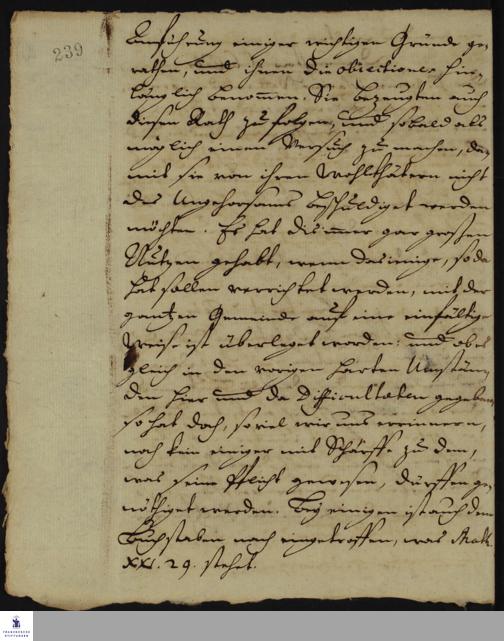 239
Anführung einiger wichtigen Gründe ge-
rathen, und ihnen die objectiones hin-
länglich benommen. Sie bezeugten auch
diesem Rath zu folgen, und sobald als
möglich einen Versuch zu machen, da-
mit sie von ihren Wohlthätern nicht
des Ungehorsams beschuldiget werden
möchten. Es hat dis immer gar großen
Nutzen gehabt, wenn dasienige, so da
hat sollen verrichtet werden, mit der
gantzen Gemeinde auf eine einfältige
Weise ist überleget worden: und ob
gleich in den vorigen harten Umstän-
den hier und da Difficultaeten gegeben,
so hat doch, so viel wir uns erinnern,
noch kein einiger mit Schärffe zu dem,
was seine Pflicht gewesen, dürffen ge-
nöthiget werden. Bey einigen ist auch dem
Buchstaben nach eingetroffen, was Matth.
XXI. 29. stehet.
FRANCKESCHE
STIFTUNGEN